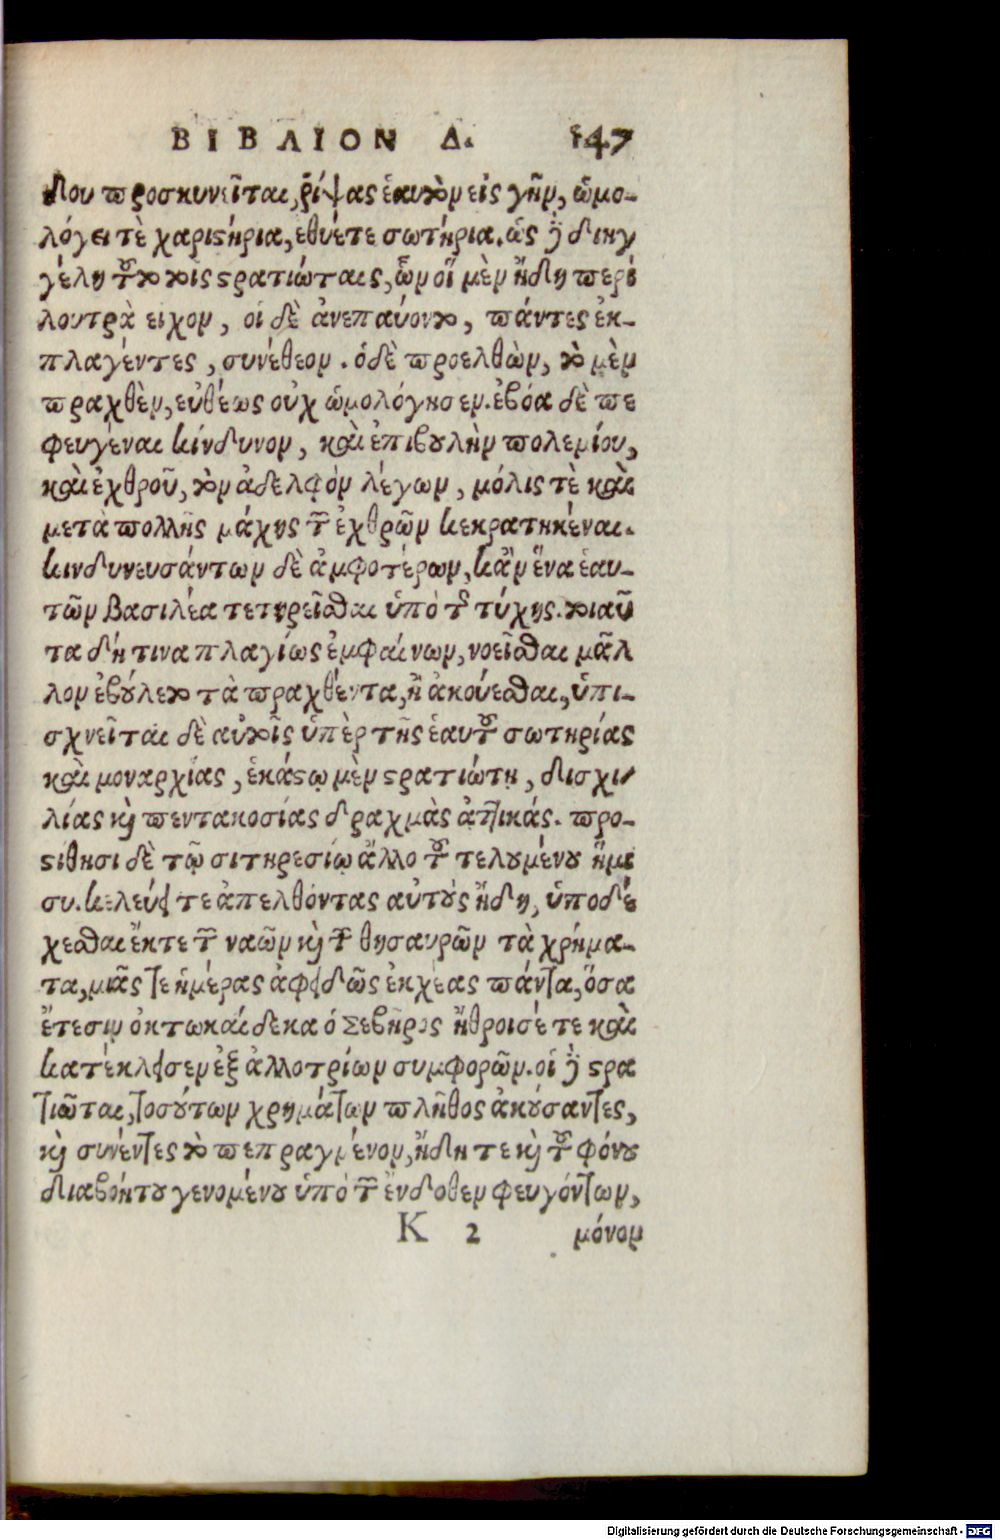 ΒΙΒΛΙΟΝ Δ. 147
δου προσκυνεῖται, ῥίψας ἑαυτὸν εἰς γῆν, ὡμο-
λόγει τὲ χαριστήρια, εθύετε σωτήρια. ὡς δὲ διηγ
γέλη τοῦτο τοῖς στρατιώταις, ὧν οἵ μὲν ἤδη περὶ
λουτρὰ ειχον, οἱ δὲ ἀνεπαύοντο, πάντες ἐκ-
πλαγέντες, συνέθεον. ὁ δὲ προελθὼν, τὸ μὲν
πραχθὲν, εὐθέως οὐχ ὡμολόγησεν. ἐβόα δὲ πε
φευγέναι κίνδυνον, καὶ ἐπιβουλὴν πολεμίου,
καὶ ἐχθροῦ, τὸν ἀδελφὸν λέγων, μόλις τὲ καὶ
μετὰ πολλῆς μάχης τῶν ἐχθρῶν κεκρατηκέναι.
κινδυνευσάντων δὲ ἀμφοτέρων, κἂν ἕνα ἑαυ-
τῶν βασιλέα τετηρεῖσθαι ὑπὸ τῆς τύχης. τοιαῦ
τα δή τινα πλαγίως ἐμφαίνων, νοεῖσθαι μᾶλ
λον ἐβούλετο τὰ πραχθέντα, ἢ ἀκούεσθαι, ὑπι-
σχνεῖται δὲ αὐτοῖς ὑπὲρ τῆς ἑαυτοῦ σωτηρίας
καὶ μοναρχίας, ἑκάστῳ μὲν στρατιώτῃ, δισχι-
λίας καὶ πεντακοσίας δραχμὰς ἀττικάς. προ-
στίθησι δὲ τῷ σιτηρεσίῳ ἄλλο τοῦ τελουμένου ἥμι
συ. κελεύει τε ἀπελθόντας αὐτοὺς ἤδη, ὑποδέ
χεσθαι ἔκ τε τῶν ναῶν καὶ τῶν θησαυρῶν τὰ χρήμα-
τα, μιᾶς τε ἡμέρας ἀφειδῶς ἐκχέας πάντα, ὅσα
ἔτεσιν ὀκτωκαίδεκα ὁ Σεβῆρος ἤθροισέ τε καὶ
κατέκλεισεν ἐξ ἀλλοτρίων συμφορῶν. οἱ δὲ στρα
τιῶται, τοσούτων χρημάτων πλῆθος ἀκούσαντες,
καὶ συνέντες τὸ πεπραγμένον, ἤδη τε καὶ τοῦ φόνου
διαβοήτου γενομένου ὑπὸ τῶν ἔνδοθεν φευγόντων,
K 2 μόνον
Digitalisierung gefördert durch die Deutsche Forschungsgemeinschaft - DFG